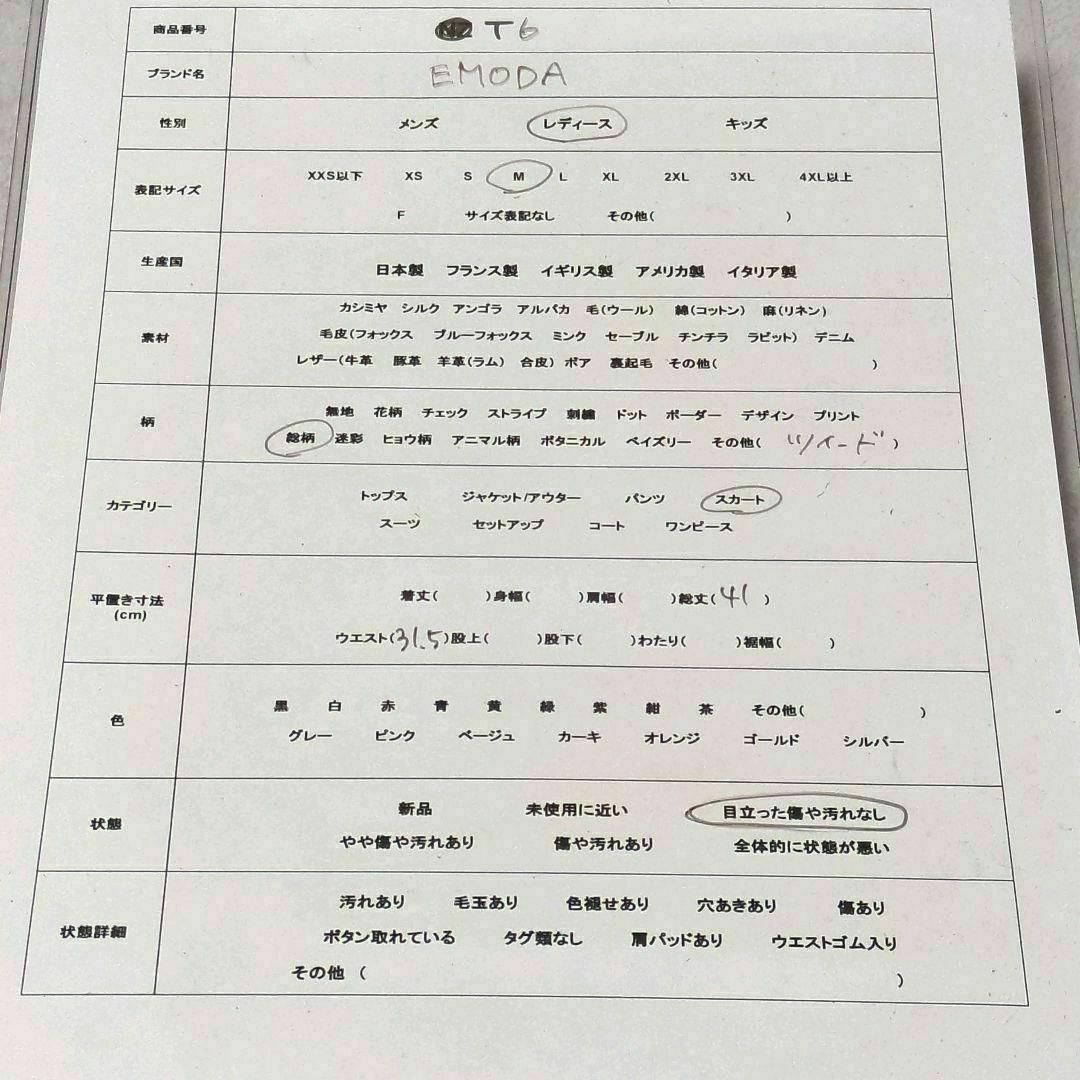 商品番号 T6
ブランド名 EMODA
性別 メンズ レディース キッズ
表記サイズ XXS以下 XS S M L XL 2XL 3XL 4XL以上
F サイズ表記なし その他( )
生産国 日本製 フランス製 イギリス製 アメリカ製 イタリア製
素材 カシミヤ シルク アンゴラ アルパカ 毛(ウール) 綿(コットン) 麻(リネン)
毛皮(フォックス ブルーフォックス ミンク セーブル チンチラ ラビット) デニム
レザー(牛革 豚革 羊革(ラム) 合皮) ボア 裏起毛 その他( )
柄 無地 花柄 チェック ストライプ 刺繍 ドット ボーダー デザイン プリント
総柄 迷彩 ヒョウ柄 アニマル柄 ボタニカル ペイズリー その他( ツイード )
カテゴリー トップス ジャケット/アウター パンツ スカート
スーツ セットアップ コート ワンピース
平置き寸法 着丈( )身幅( )肩幅( )総丈( 41 )
(cm) ウエスト(31.5)股上( )股下( )わたり( )裾幅( )
色 黒 白 赤 青 黄 緑 紫 紺 茶 その他( )
グレー ピンク ベージュ カーキ オレンジ ゴールド シルバー
状態 新品 未使用に近い 目立った傷や汚れなし
やや傷や汚れあり 傷や汚れあり 全体的に状態が悪い
状態詳細 汚れあり 毛玉あり 色褪せあり 穴あきあり 傷あり
ボタン取れている タグ類なし 肩パッドあり ウエストゴム入り
その他 ( )